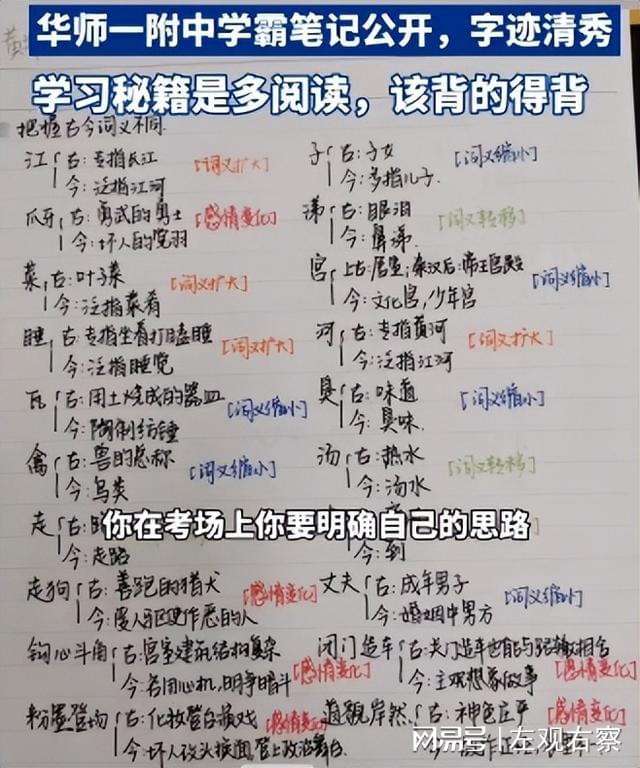 华师一附中学霸笔记公开，字迹清秀
学习秘籍是多阅读，该背的得背
把握古今词义不同
江 古：专指长江 [词义扩大]
今：泛指江河
子 古：子女 [词义缩小]
今：多指儿子.
爪牙 古：勇武的勇士 [感情变化]
今：坏人的党羽
涕 古：眼泪 [词义转移]
今：鼻涕.
菜 古：叶子菜 [词义扩大]
今：泛指菜肴
宫 上古：居室；秦汉后：帝王宫殿 [词义缩小]
今：文化宫，少年宫
睡 古：专指坐着打瞌睡 [词义扩大]
今：泛指睡觉
河 古：专指黄河 [词义扩大]
今：泛指江河
瓦 古：用土烧成的器皿 [词义缩小]
今：陶制纺锤
臭 古：味道 [词义缩小]
今：臭味.
禽 古：兽的总称 [词义缩小]
今：鸟类
汤 古：热水 [词义转移]
今：汤水
走 古：
今：走路
今：到
你在考场上你要明确自己的思路
走狗 古：善跑的猎犬 [感情变化]
今：受人驱使作恶的人
丈夫 古：成年男子 [词义缩小]
今：婚姻中男方
钩心斗角 古：宫室建筑结构复杂 [感情变化]
今：各用心机，明争暗斗
闭门造车 古：关门造车也能与 相合 [感情变化]
今：主观想象做事
粉墨登场 古：化妆登台演戏 [感情变化]
今：坏人 登上政治舞台.
道貌岸然 古：神色庄严 [感情变化]
今：
网易号 | 左观右察